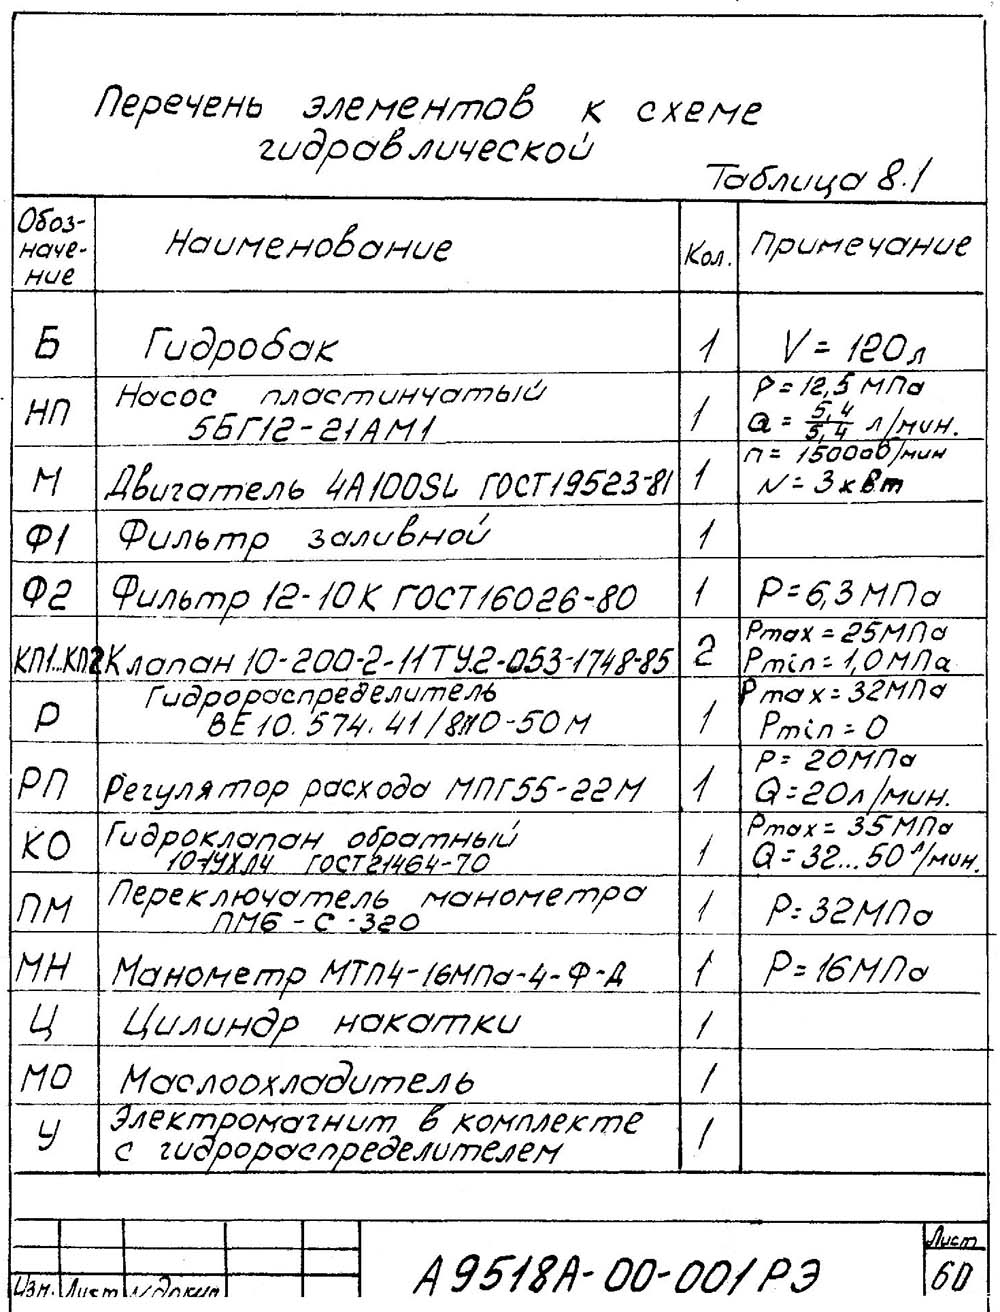 Перечень элементов к схеме
гидравлической
Таблица 8.1
Обоз-
наче-
ние
Наименование
Кол.
Примечание
Б
Гидробак
1
V = 120 л
НП
Насос пластинчатый
5БГ12-21АМ1
1
P = 12,5 МПа
Q = 5,4/5,4 л/мин.
М
Двигатель 4А100SL ГОСТ19523-81
1
n = 1500об/мин
N = 3 кВт
Ф1
Фильтр заливной
1
Ф2
Фильтр 12-10К ГОСТ16026-80
1
P=6,3МПа
КП1..КП2
Клапан 10-200-2-11ТУ2-053-1748-85
2
Pmax = 25МПа
Pmin = 1,0МПа
Р
Гидрораспределитель
ВЕ10.574.41/ -50М
1
Pmax=32МПа
Pmin = 0
РП
Регулятор расхода МПГ55-22М
1
P= 20МПа
Q=20л/мин.
КО
Гидроклапан обратный
10-1УХЛ4 ГОСТ21464-70
1
Pmax= 35МПа
Q=32...50 л/мин.
ПМ
Переключатель манометра
ПМ6-С-320
1
P=32МПа
МН
Манометр МТП4-16МПа-4-Ф-Д
1
P=16МПа
Ц
Цилиндр накатки
1
МО
Маслоохладитель
1
У
Электромагнит в комплекте
с гидрораспределителем
1
Изм. Лист N докум
А9518А-00-001РЭ
Лист
60